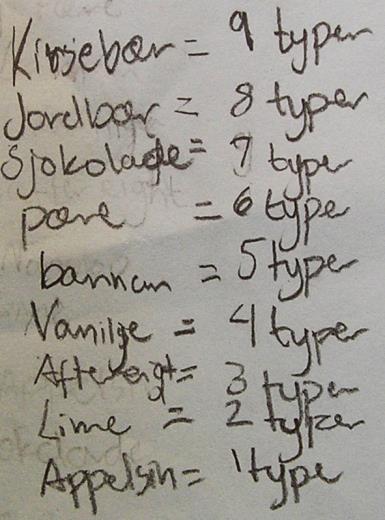 Kirsebær = 9 typer
Jordbær = 8 typer
Sjokolade = 7 typer
pære = 6 typer
bannan = 5 typer
Vanilje = 4 typer
Aftereigt = 3 typer
Lime = 2 typer
Appelsin = 1 type